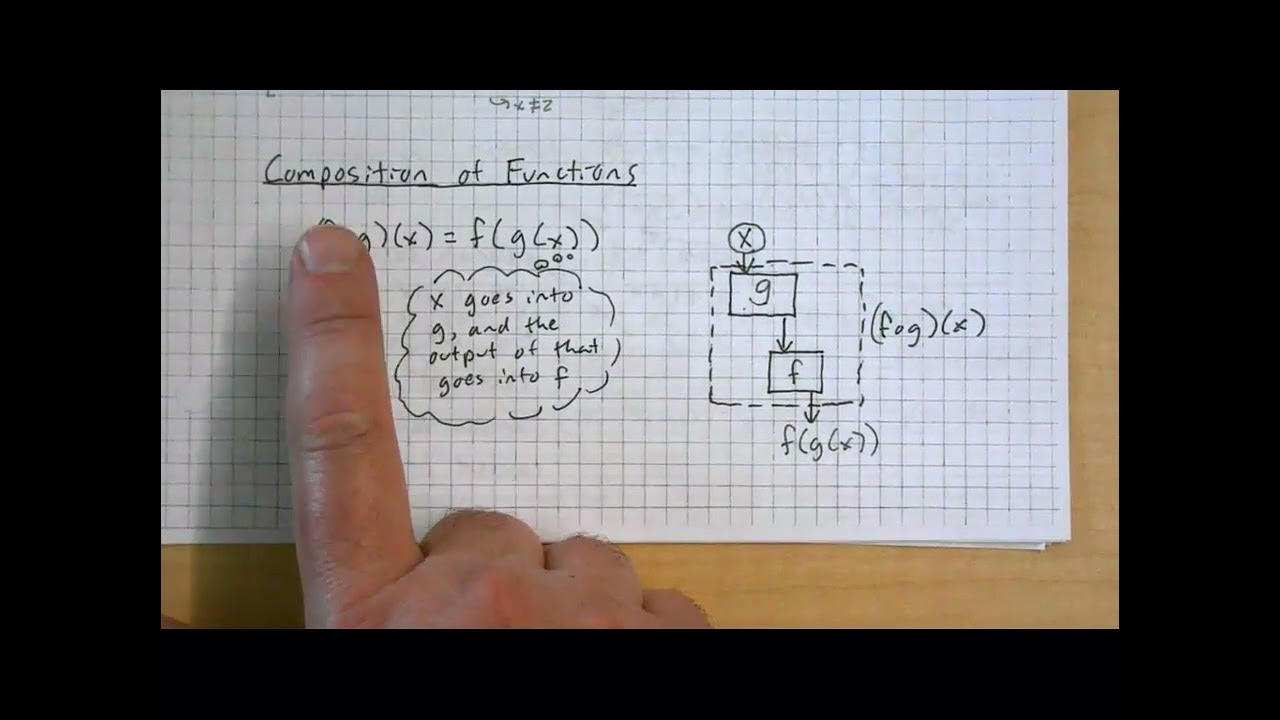 x≠2
Composition of Functions
g)(x) = f(g(x))
x goes into
g, and the
output of that
goes into f
x
g
f
(fog)(x)
f(g(x))